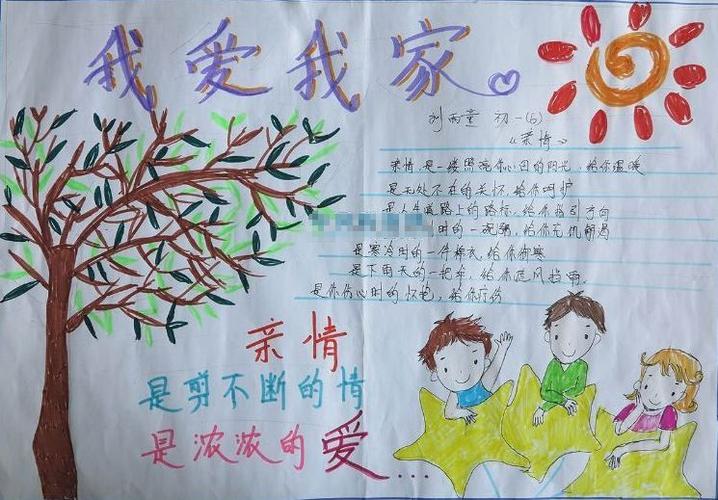 我爱我家
刘雨童 初一(6)
《亲情》
亲情,是一缕照亮你心田的阳光,给你温暖
是无处不在的关怀,给你呵护
是人生道路上的路标,给你指引方向
时的一碗粥,给你充饥解渴
是寒冷时的一件棉衣,给你御寒
是下雨天的一把伞,给你遮风挡雨,
是你伤心时的怀抱,给你疗伤
亲情
是剪不断的情
是浓浓的爱...